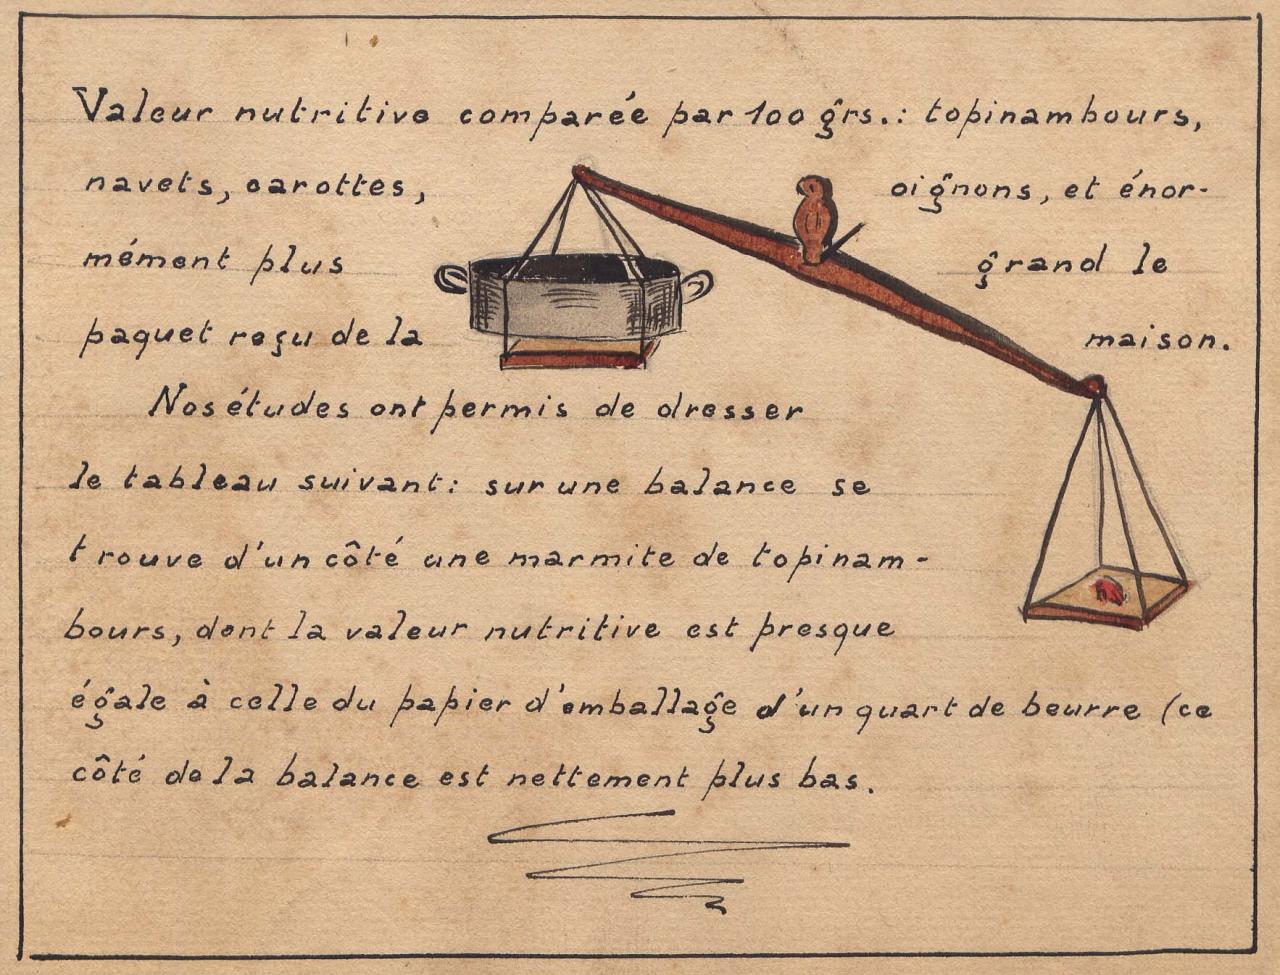 Valeur nutritive comparée par 100 grs.: topinambours,
navets, carottes, oignons, et énor-
mément plus grand le
paquet reçu de la maison.
Nos études ont permis de dresser
le tableau suivant: sur une balance se
trouve d'un côté une marmite de topinam-
bours, dont la valeur nutritive est presque
égale à celle du papier d'emballage d'un quart de beurre (ce
côté de la balance est nettement plus bas.